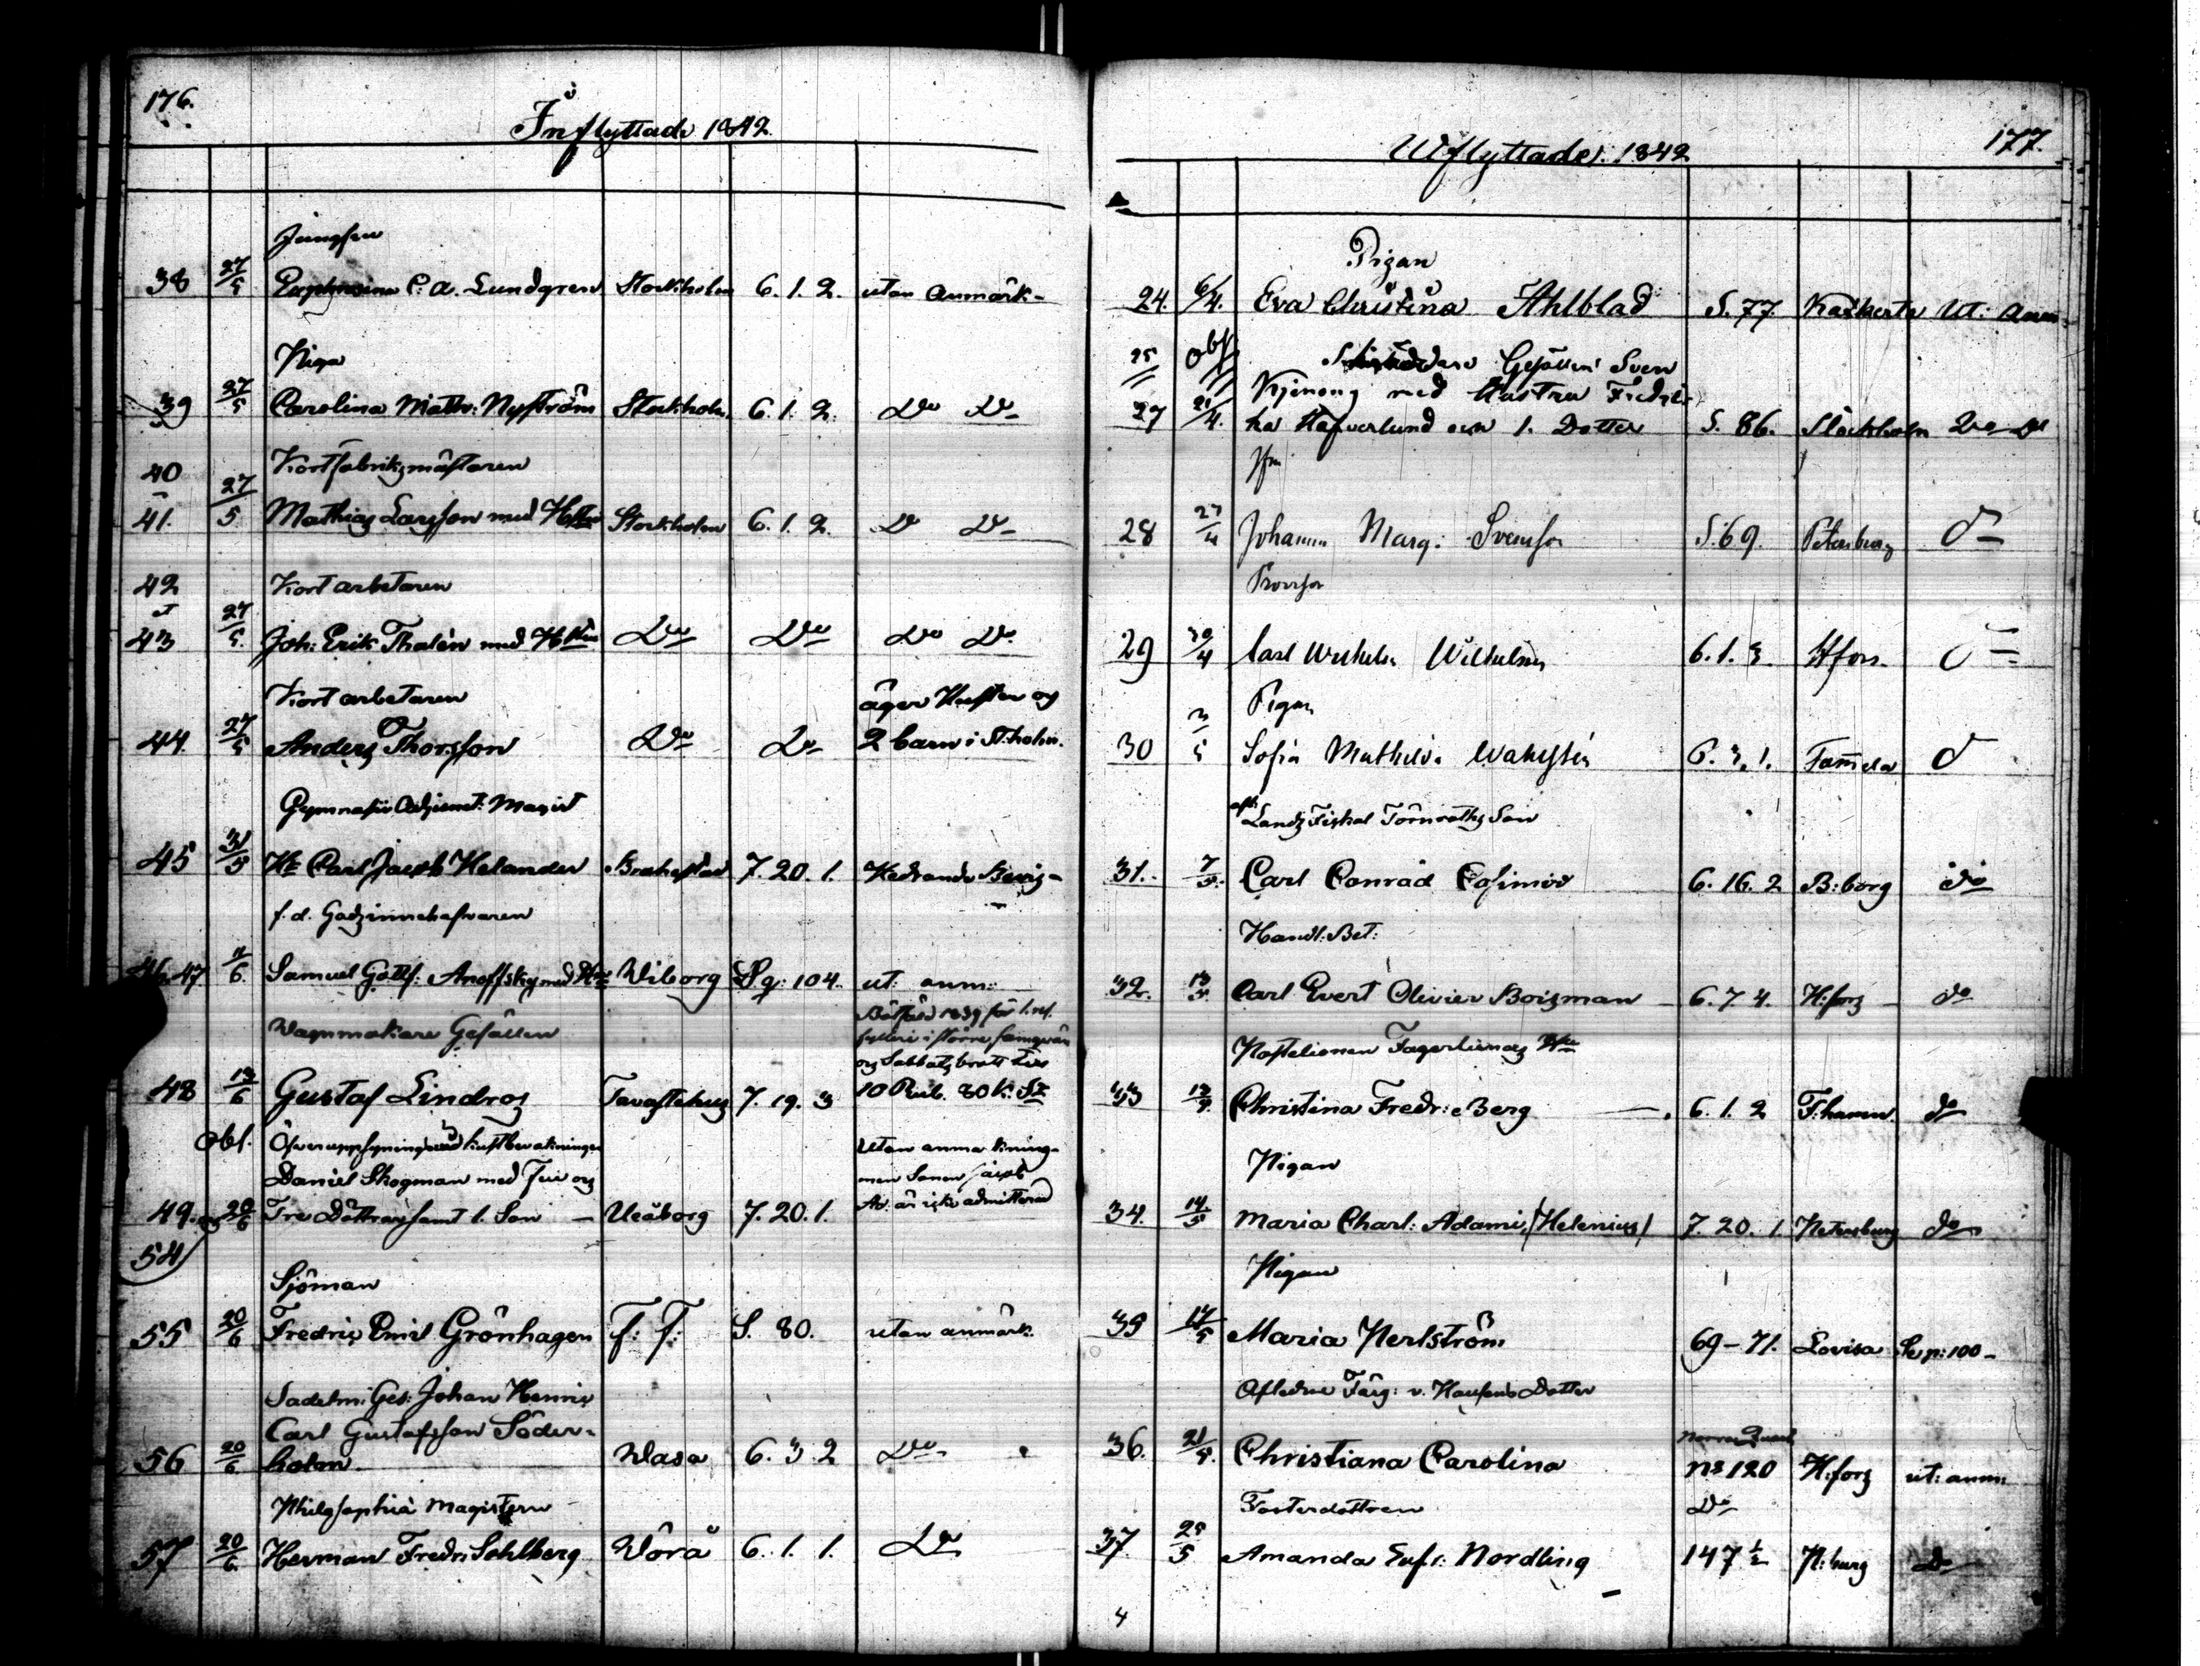 176.
Inflyttade 1842
Jungfru
38 27/5 Euphrosina C: A. Lundgren Stockholm 6. 1. 2. utan anmärk-
Piga
39 27/5 Carolina Math: Nyström Stockholm 6. 1. 2. Do Do
40 Kortfabriksmästaren
41. 27/5 Mathias Larsson med Hustru Stockholm 6. 1. 2. Do Do
42 Kortarbetaren
et
43 27/5. Joh: Erik Thalén med Hustru Do Do Do Do
Kortarbetaren äger Hustru og
44. 27/5 Anders Thorsson Do Do 2 barn i St:holm.
Gymnasii Adjunct: Magist
45 31/5 Hr Carl Jacob Helander Brahestad 7. 20. 1. Hedrande Bevis-
f. d. Godsinnehafvaren
46. 47 11/6. Samuel Gottf: Anoffsky med Hu Wiborg Sg: 104. ut: anm:
Wagnmakare Gesällen
48 13/6 Gustaf Lindros Tavastehus 7. 19. 3 10 Rub. 80 K: Sr
Obs. Öfveruppsyningsmad Kustbevakningen Utan anmärkning-
Daniel Skogman med Fru og men Sonen Jacob
49. og 20/6 Tre Döttrar samt 1. Son – Uleåborg 7. 20. 1. Ad. är icke admitterad
54
Sjöman
55 20/6 Fredric Emil Grönhagen F: F: S. 80. utan anmärk.
Sadelm: Ges: Johan Henric
Carl Gustafsson Söder-
56 20/6 holm. Wasa 6. 3. 2 Do
Philosophiæ Magistern
57 20/6 Herman Fredr: Sohlberg Wörå 6. 1. 1. Do
177.
Utflyttade: 1842
Pigan
24. 6/4. Eva Christina Ahlblad S. 77. Ut: Anm
25 Obs Gesällen Sven
med Hustru Fredri-
27 21/4. ka och 1. Dotter S. 86. Stockholm Do Do
Jfru
28 27/4 Johanna Marg: Svensson S. 69. Petersburg do
Provisor
29 30/4 Carl Wilhelm 6. 1. 3. H:fors. do
Pigan
30 3/5 Sofia Mathilda 6. 3. 1. Tammela do
afl: Lands Fiskal Törnroths Son
31. 7/5. Carl Conrad Casimir 6. 16. 2 B:borg do
Handl: Bet:
32. 13/5 Carl Evert Olivier Boisman – 6. 7 4. H:fors – do
Hustru
33 13/5. Christina Fredr: Berg 6. 1. 2 F:hamn. do
Pigan
34. 14/5 Maria Charl: Adami /Helenius/ 7. 20. 1. Petersburg do
Pigan
35 17/5 Maria Perlström 69 – 71. Lovisa Se p: 100 –
Aflidne Färg: v. Hausens Dotter
36. 21/5. Christiana Carolina No 120 H:fors ut: anm:
Fosterdottren Do
37. 25/5 Amanda Eufr: Nordling 147 ½ P:burg Do
4